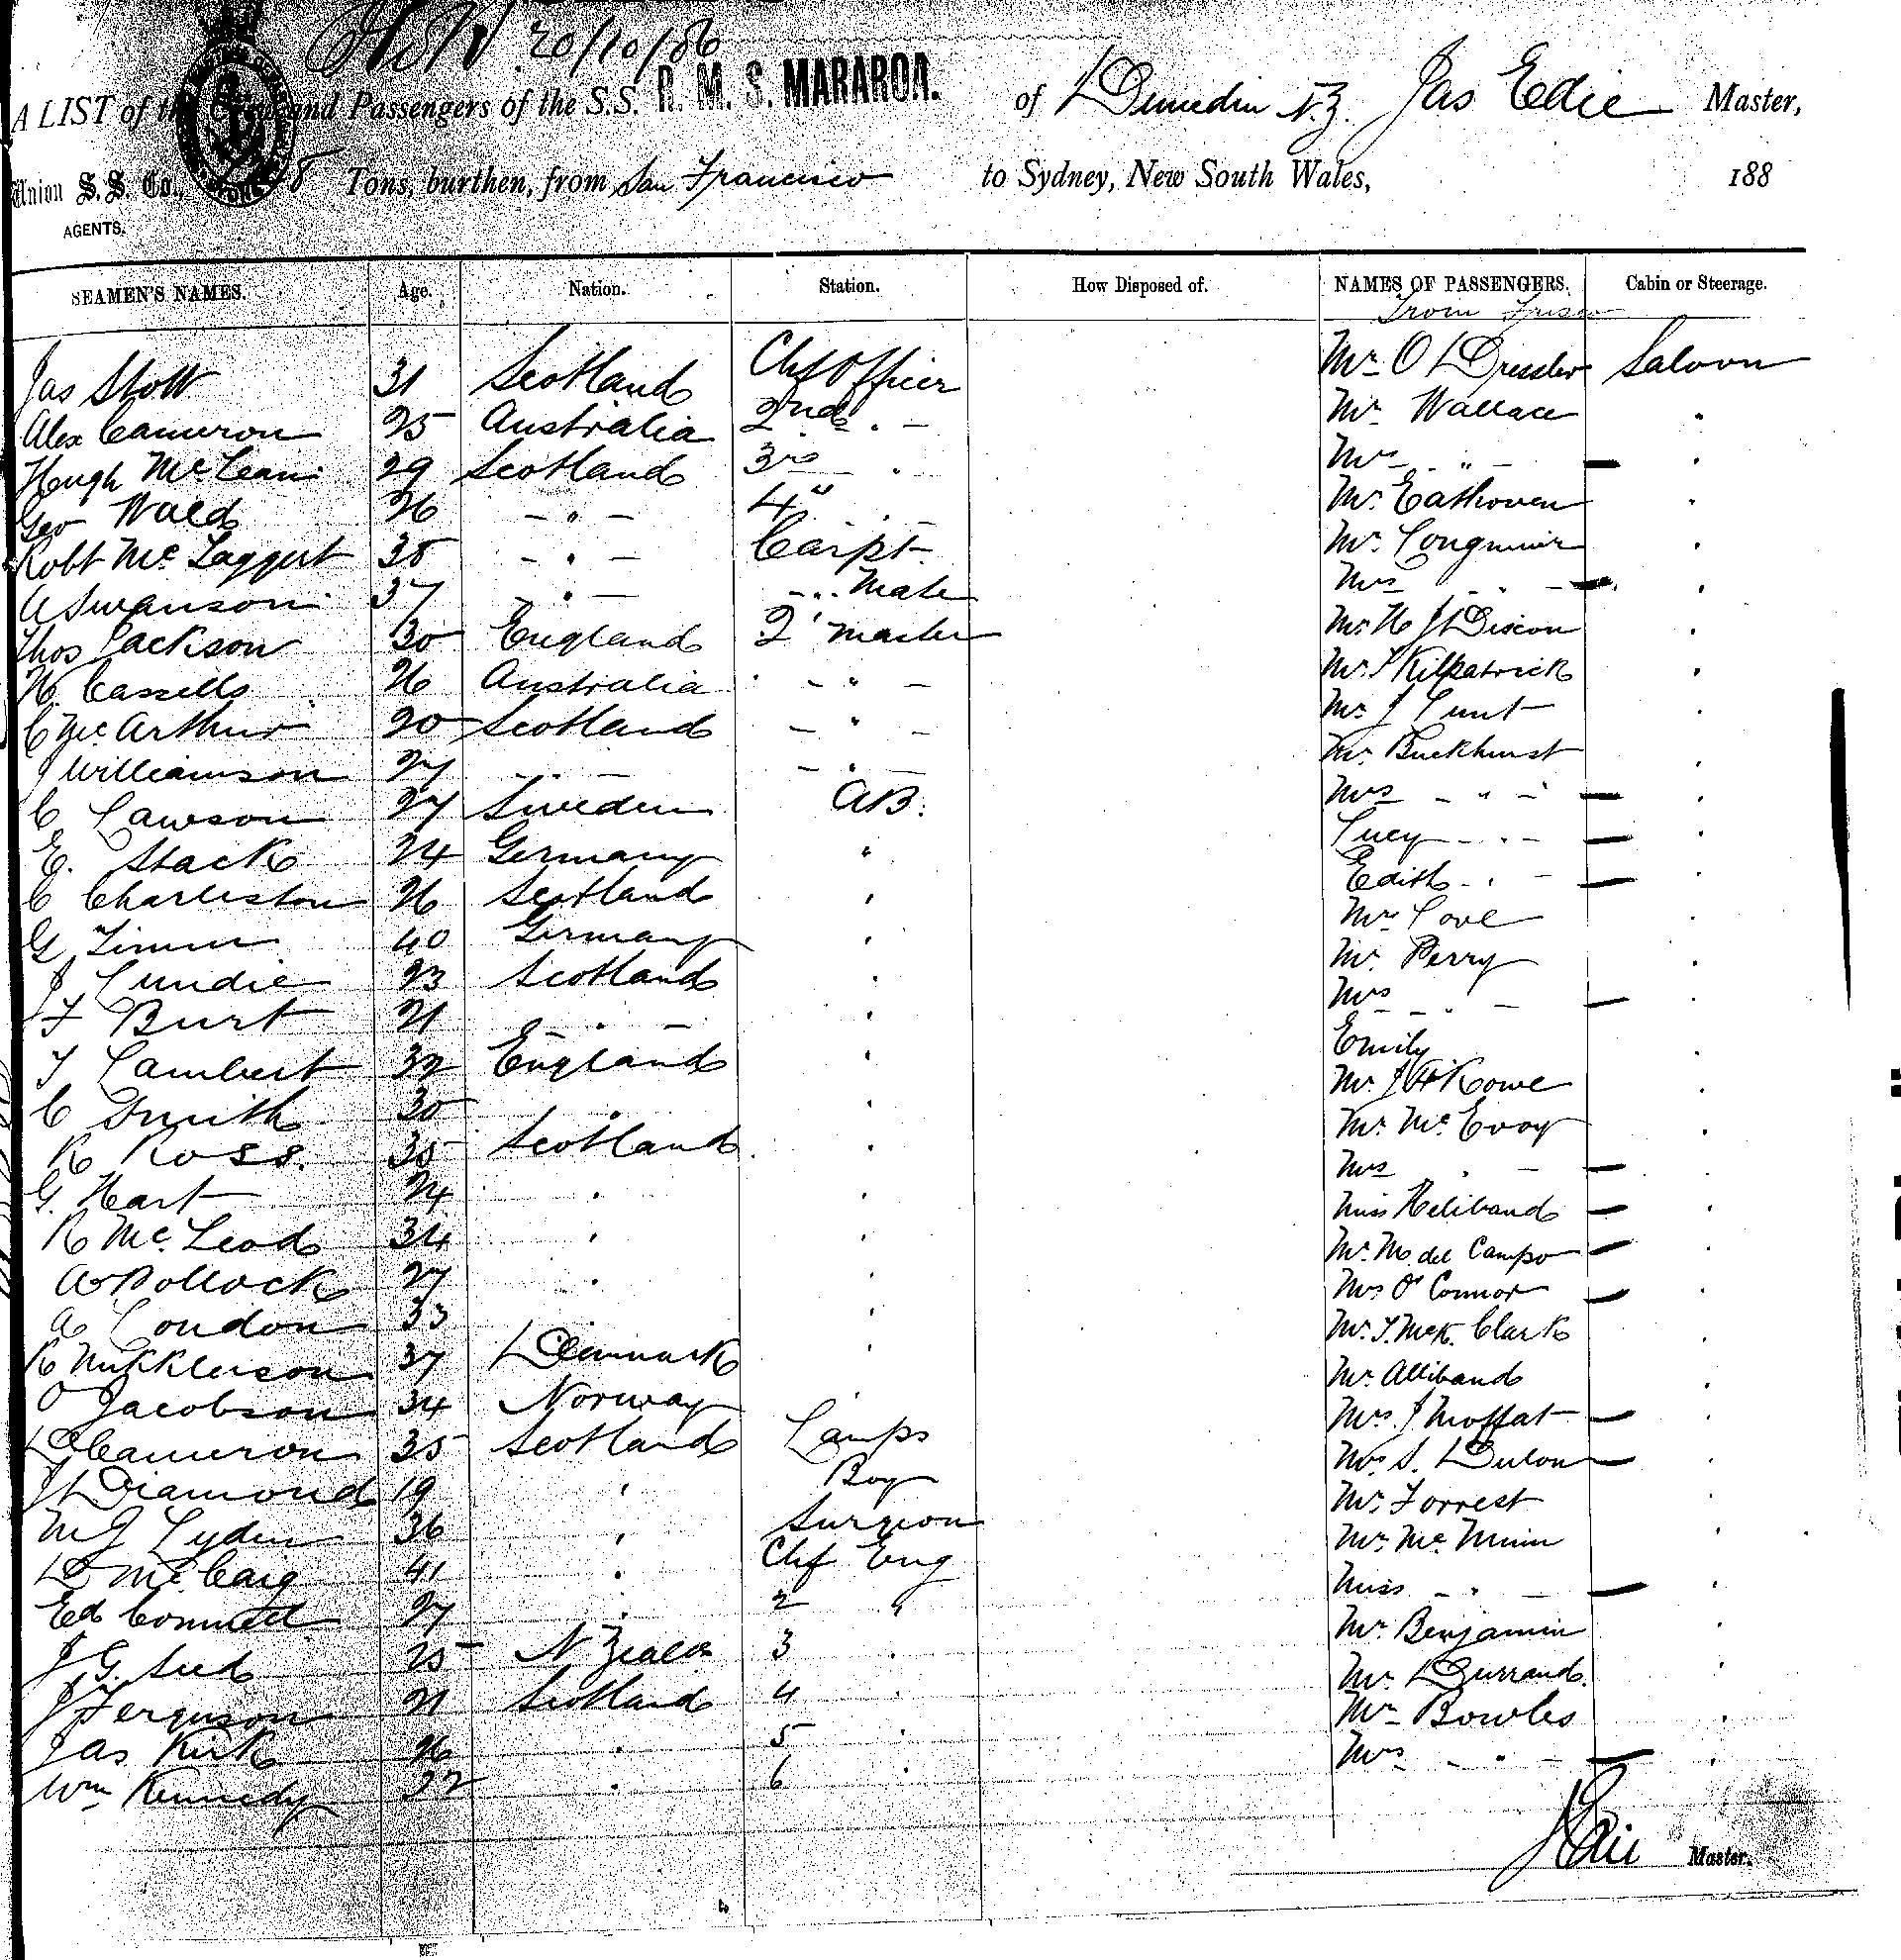 20/10/86
A LIST of the Crew and Passengers of the S.S. R. M. S. MARAROA. of Dunedin N.Z. Jas Edie Master,
Union S. S. Co., Tons, burthen, from San Francisco to Sydney, New South Wales, 188
AGENTS.
SEAMEN'S NAMES. Age. Nation. Station. How Disposed of. NAMES OF PASSENGERS. Cabin or Steerage.
From Frisco
Jas Stott 31 Scotland Chf Officer Mr O Dressler Saloon
Alex Cameron 25 Australia 2nd " Mr Wallace "
Hugh McLean 29 Scotland 3rd " Mrs " "
Geo Wald 26 " 4th " Mr. Eathoven "
Robt McTaggert 38 " Carpt. Mr. Longmuir "
A Swanson 37 " " Mate Mrs " "
Thos Jackson 30 England Q' master Mr. H J Discon "
W. Cassells 26 Australia " Mr. T Kilpatrick "
C McArthur 20 Scotland " Mr. J Lunt "
J Williamson 27 " " Mr. Buckhurst "
C Lawson 27 Sweden AB. Mrs " "
E. Stack 24 Germany " Lucy " "
C Charleston 26 Scotland " Edith " "
G Timm 40 Germany " Mr Love "
J Lundie 23 Scotland " Mr. Perry "
F Burt 21 " " Mrs " "
T Lambert 32 England " Emily "
C Smith 30 " " Mr. J H Rowe "
R Ross. 35 Scotland " Mr. McEvoy "
G. Hart 24 " " Mrs " "
R McLeod 34 " " Miss Heliband "
A Pollock 27 " " Mr. M. del Campo "
A London 33 " " Mrs O'Connor "
R Mikkleson 37 Denmark " Mr. T. McK. Clark "
O Jacobson 34 Norway " Mr. Alliband "
D Cameron 35 Scotland Lamps Mrs. J Moffat "
J Diamond 19 " Boy Mrs. S. Dulon "
M J Lyden 36 " Surgeon Mr. Forrest "
D McCaig 41 " Chf Eng Mr. McMinn "
Ed Connell 27 " 2 " Miss " "
J G. Seed 25 N Zeald 3 " Mr. Benjamin "
J Ferguson 21 Scotland 4 " Mr. Durrand. "
Jas Kirk 26 " 5 " Mr Bowles "
Wm Kennedy 22 " 6 " Mrs " "
J Edie Master.